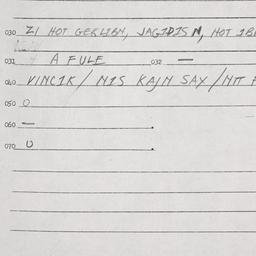 030 ZI HOT GERLIBN, JAGIDIS N, HOT IB
031 A FULE 032 —
040 VINCIK / NIS KAJN SAX / NIT
050 O
060 — .
070 O .